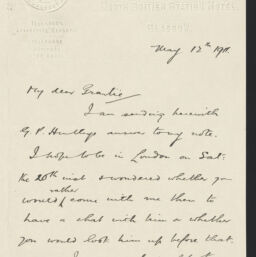 NORTH BRITISH STATION HOTEL
May 12th 1911.
My dear
I am sending herewith
G. P. answer to my note.
I hope to be in London on Sat:
the 20th inst & wondered whether you
rather
would come with me then to
have a chat with him or whether
you would look him up before that.